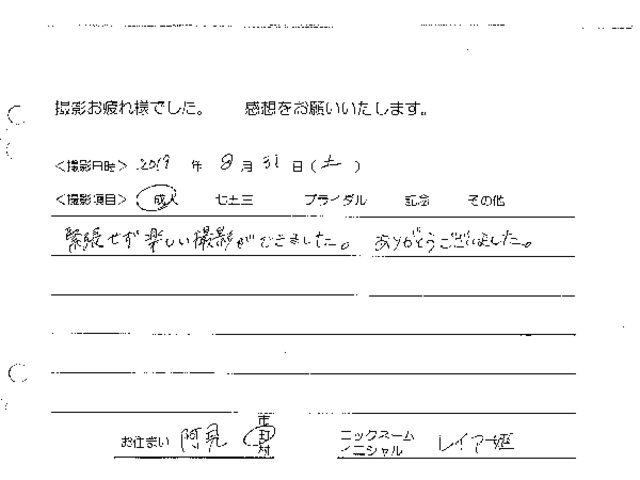 撮影お疲れ様でした。 感想をお願いいたします。
<撮影日時> 2019 年 8 月 31 日 ( 土 )
<撮影項目> 成人 七五三 ブライダル 記念 その他
緊張せず楽しい撮影ができました。 ありがとうございました。
市
お住まい 阿見 町
村
ニックネーム
イニシャル レイアー姫